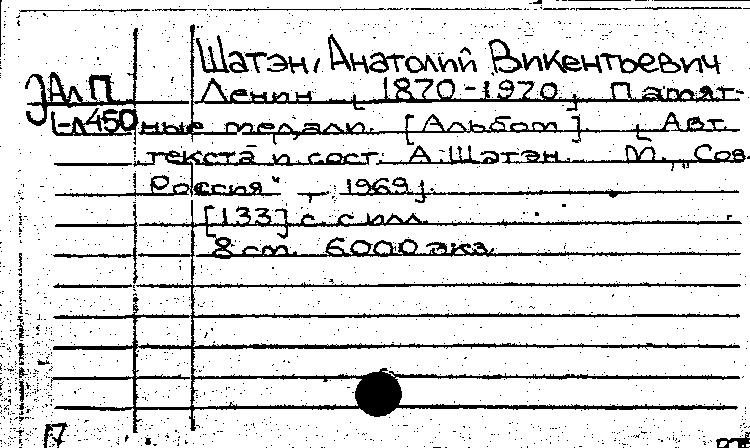 Шатэн, Анатолий Викентьевич
ЗАлП Ленин [1870-1970]. Памят-
L-л450 ные медали. [Альбом]. [Авт.
текста и сост. А. Шатэн. М., „Сов.
Россия“, 1969].
[133] с. с илл.
8 см. 6000 экз.
17